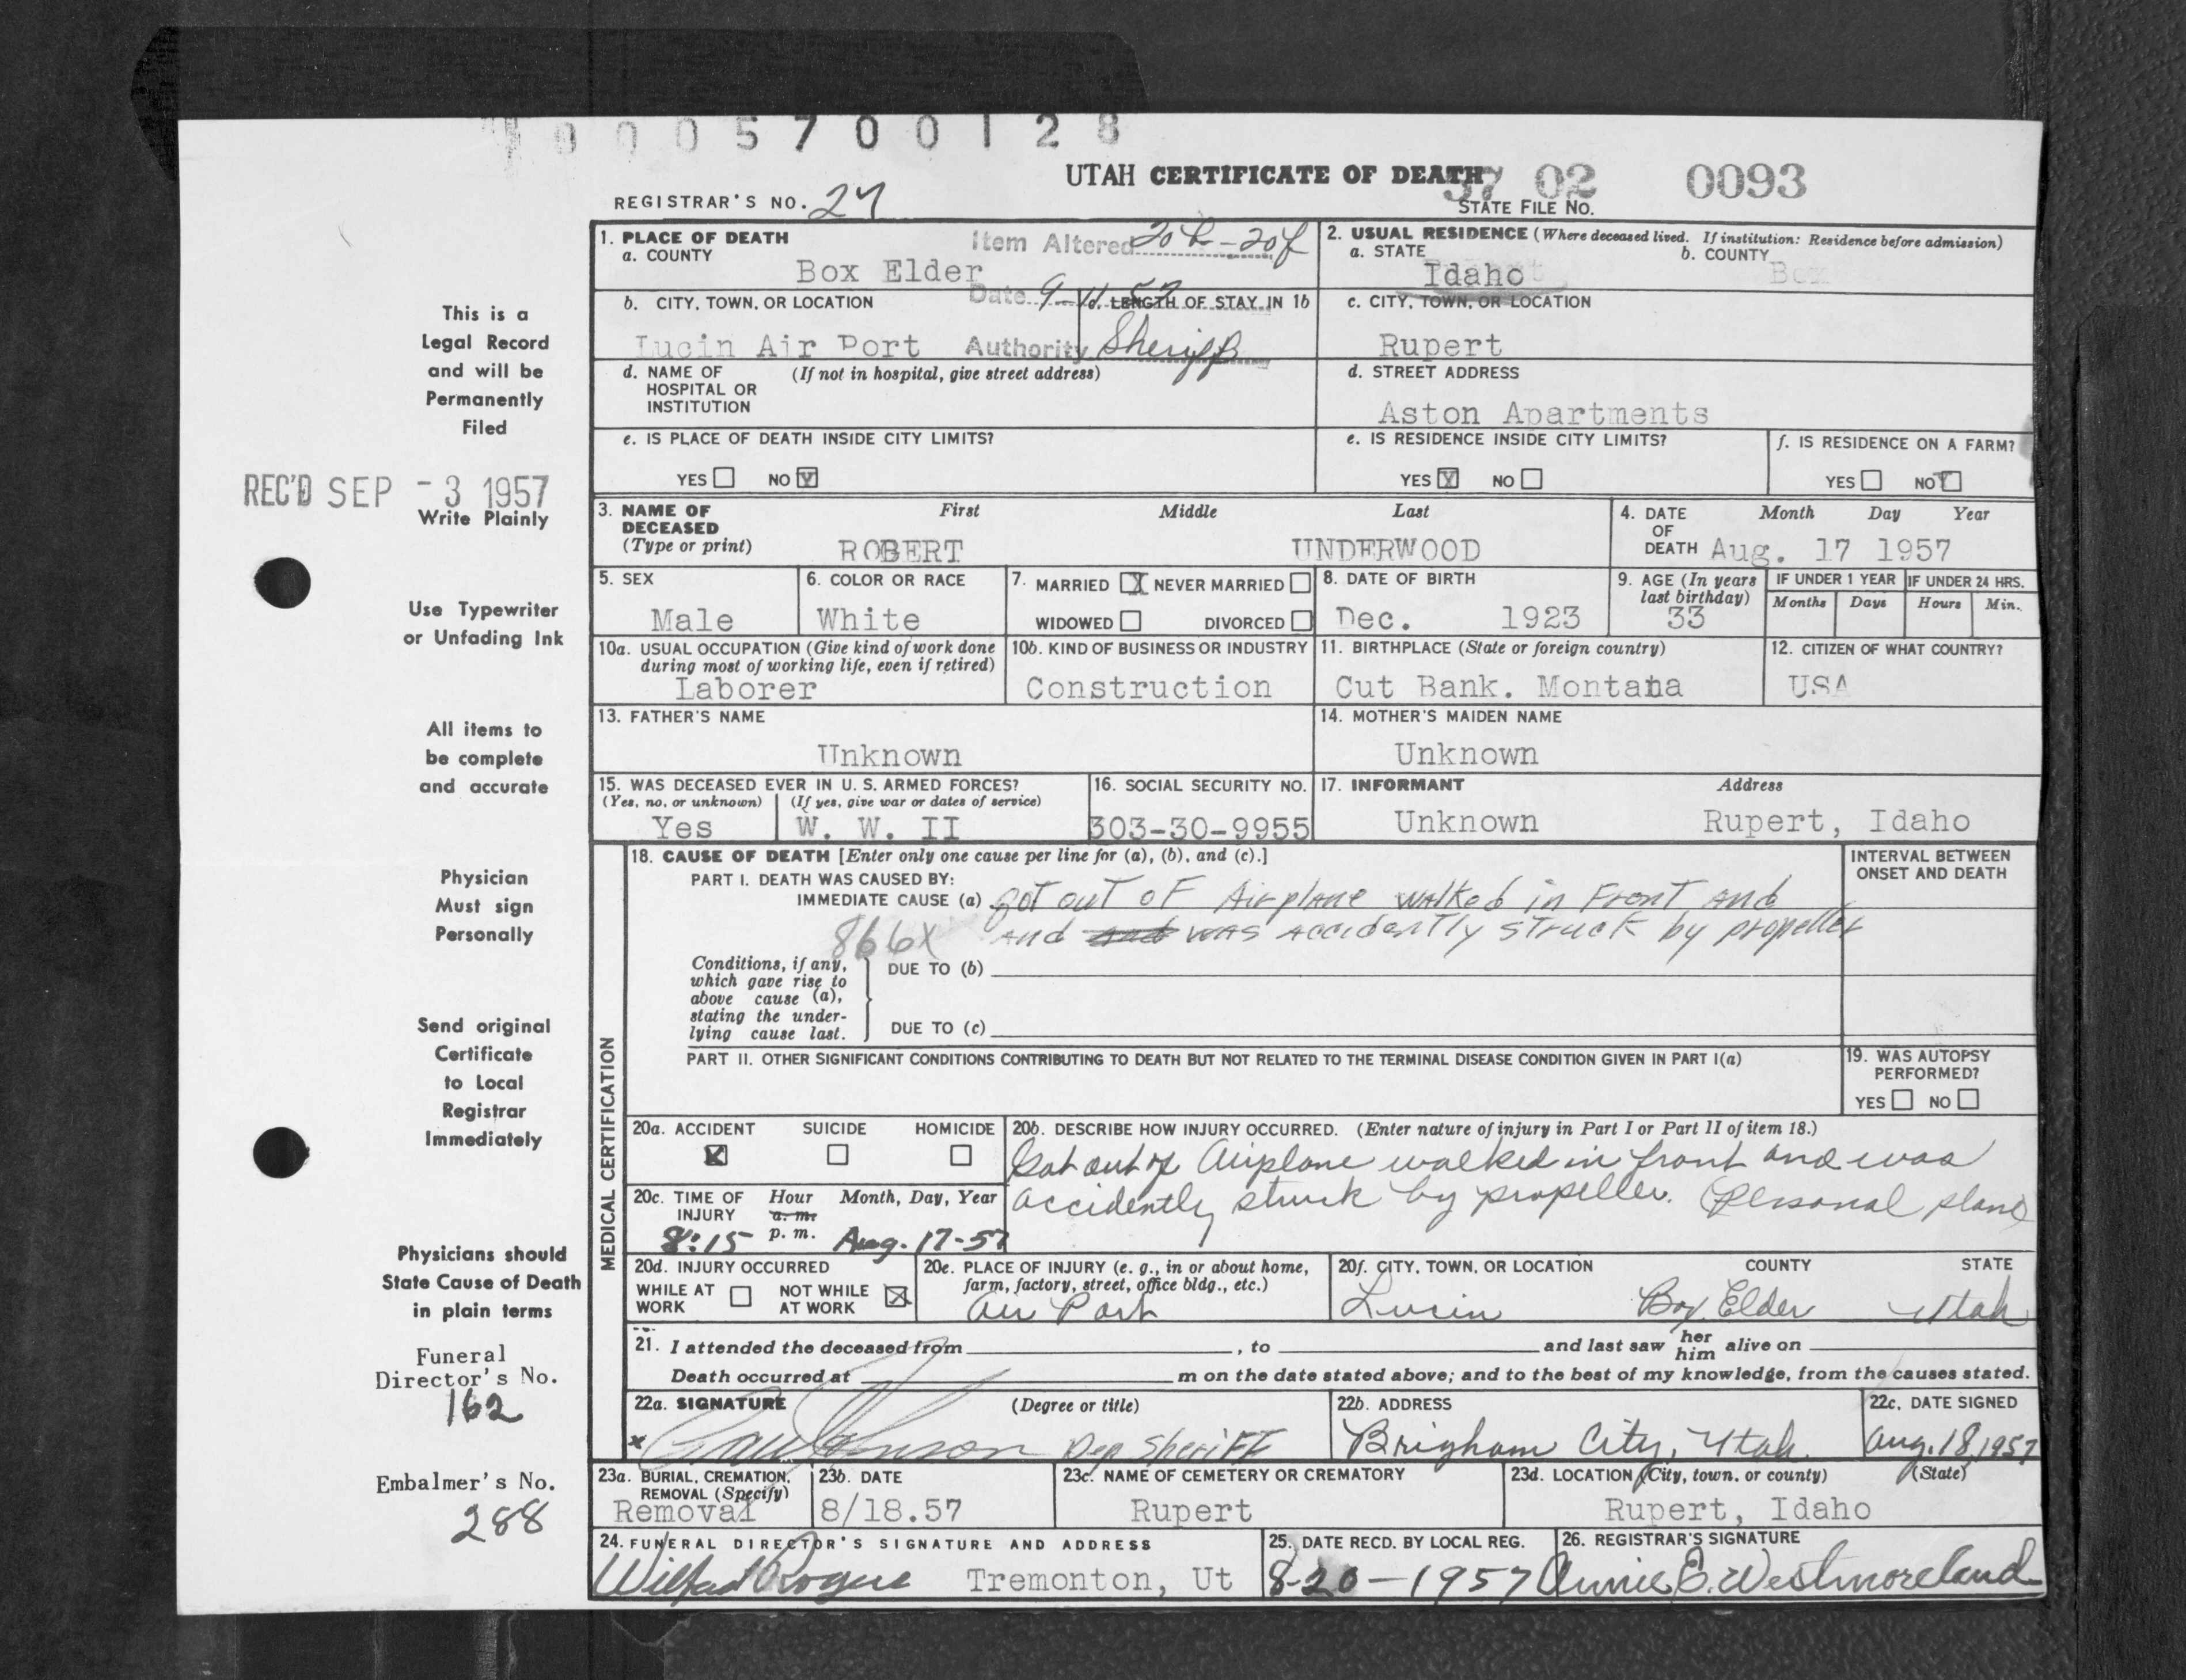 0005700128
UTAH CERTIFICATE OF DEATH 57 02 0093
REGISTRAR'S NO. 27
STATE FILE NO.
1. PLACE OF DEATH
a. COUNTY
Box Elder
Item Altered 20b-20f
Date 9-11-57
Authority Sheriff
2. USUAL RESIDENCE (Where deceased lived. If institution: Residence before admission)
a. STATE
Idaho
b. COUNTY
Box
b. CITY, TOWN, OR LOCATION
Lucin Air Port
c. LENGTH OF STAY IN 1b
c. CITY, TOWN, OR LOCATION
Rupert
d. NAME OF HOSPITAL OR INSTITUTION
(If not in hospital, give street address)
d. STREET ADDRESS
Aston Apartments
e. IS PLACE OF DEATH INSIDE CITY LIMITS?
YES NO X
e. IS RESIDENCE INSIDE CITY LIMITS?
YES X NO
f. IS RESIDENCE ON A FARM?
YES NO
3. NAME OF DECEASED (Type or print)
First Middle Last
ROBERT UNDERWOOD
4. DATE OF DEATH
Month Day Year
Aug. 17 1957
5. SEX
Male
6. COLOR OR RACE
White
7. MARRIED X NEVER MARRIED
WIDOWED DIVORCED
8. DATE OF BIRTH
Dec. 1923
9. AGE (In years last birthday)
33
IF UNDER 1 YEAR
Months Days
IF UNDER 24 HRS.
Hours Min.
10a. USUAL OCCUPATION (Give kind of work done during most of working life, even if retired)
Laborer
10b. KIND OF BUSINESS OR INDUSTRY
Construction
11. BIRTHPLACE (State or foreign country)
Cut Bank. Montana
12. CITIZEN OF WHAT COUNTRY?
USA
13. FATHER'S NAME
Unknown
14. MOTHER'S MAIDEN NAME
Unknown
15. WAS DECEASED EVER IN U. S. ARMED FORCES?
(Yes, no, or unknown) (If yes, give war or dates of service)
Yes W. W. II
16. SOCIAL SECURITY NO.
303-30-9955
17. INFORMANT Address
Unknown Rupert, Idaho
MEDICAL CERTIFICATION
18. CAUSE OF DEATH [Enter only one cause per line for (a), (b), and (c).]
PART I. DEATH WAS CAUSED BY:
IMMEDIATE CAUSE (a) got out of Airplane walked in Front and
866X and and was accidently struck by propeller
INTERVAL BETWEEN ONSET AND DEATH
Conditions, if any, which gave rise to above cause (a), stating the under-lying cause last.
DUE TO (b)
DUE TO (c)
PART II. OTHER SIGNIFICANT CONDITIONS CONTRIBUTING TO DEATH BUT NOT RELATED TO THE TERMINAL DISEASE CONDITION GIVEN IN PART I(a)
19. WAS AUTOPSY PERFORMED?
YES NO
20a. ACCIDENT SUICIDE HOMICIDE
X
20b. DESCRIBE HOW INJURY OCCURRED. (Enter nature of injury in Part I or Part II of item 18.)
Got out of Airplane walked in front and was
accidently struck by propeller. (Personal plane)
20c. TIME OF INJURY
Hour Month, Day, Year
a. m.
8:15 p. m. Aug. 17-57
20d. INJURY OCCURRED
WHILE AT WORK NOT WHILE AT WORK X
20e. PLACE OF INJURY (e. g., in or about home, farm, factory, street, office bldg., etc.)
Air Port
20f. CITY, TOWN, OR LOCATION COUNTY STATE
Lucin Box Elder Utah
21. I attended the deceased from , to and last saw her him alive on
Death occurred at m on the date stated above; and to the best of my knowledge, from the causes stated.
22a. SIGNATURE (Degree or title)
x Johnson Dep Sheriff
22b. ADDRESS
Brigham City, Utah.
22c. DATE SIGNED
Aug. 18, 1957
23a. BURIAL, CREMATION, REMOVAL (Specify)
Removal
23b. DATE
8/18.57
23c. NAME OF CEMETERY OR CREMATORY
Rupert
23d. LOCATION (City, town, or county) (State)
Rupert, Idaho
24. FUNERAL DIRECTOR'S SIGNATURE AND ADDRESS
Tremonton, Ut
25. DATE RECD. BY LOCAL REG.
8-20-1957
26. REGISTRAR'S SIGNATURE
Annie E. Westmoreland
This is a
Legal Record
and will be
Permanently
Filed
REC'D SEP - 3 1957
Write Plainly
Use Typewriter
or Unfading Ink
All items to
be complete
and accurate
Physician
Must sign
Personally
Send original
Certificate
to Local
Registrar
Immediately
Physicians should
State Cause of Death
in plain terms
Funeral
Director's No.
162
Embalmer's No.
288